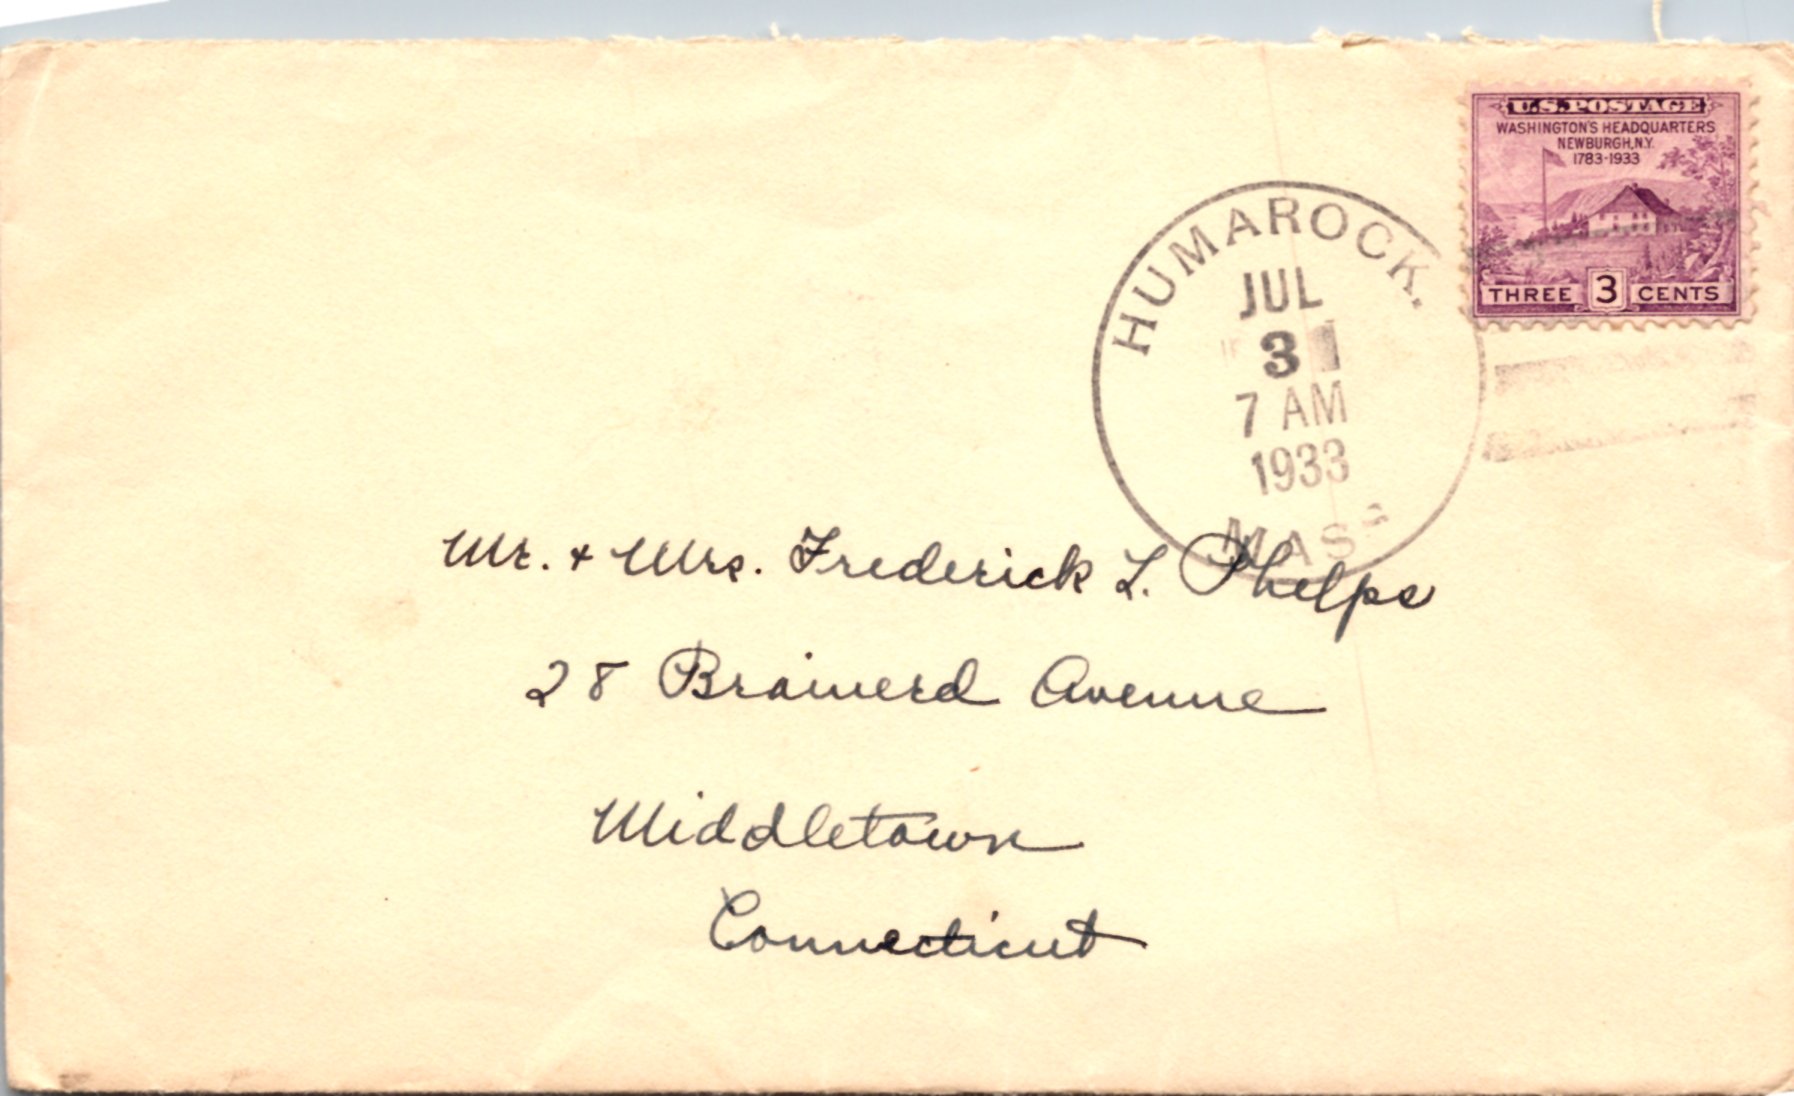 U.S. POSTAGE
WASHINGTON'S HEADQUARTERS
NEWBURGH, N.Y.
1783-1933
THREE 3 CENTS
HUMAROCK.
JUL
3
7 AM
1933
MASS
Mr. + Mrs. Frederick L. Phelps
28 Brainerd Avenue
Middletown
Connecticut